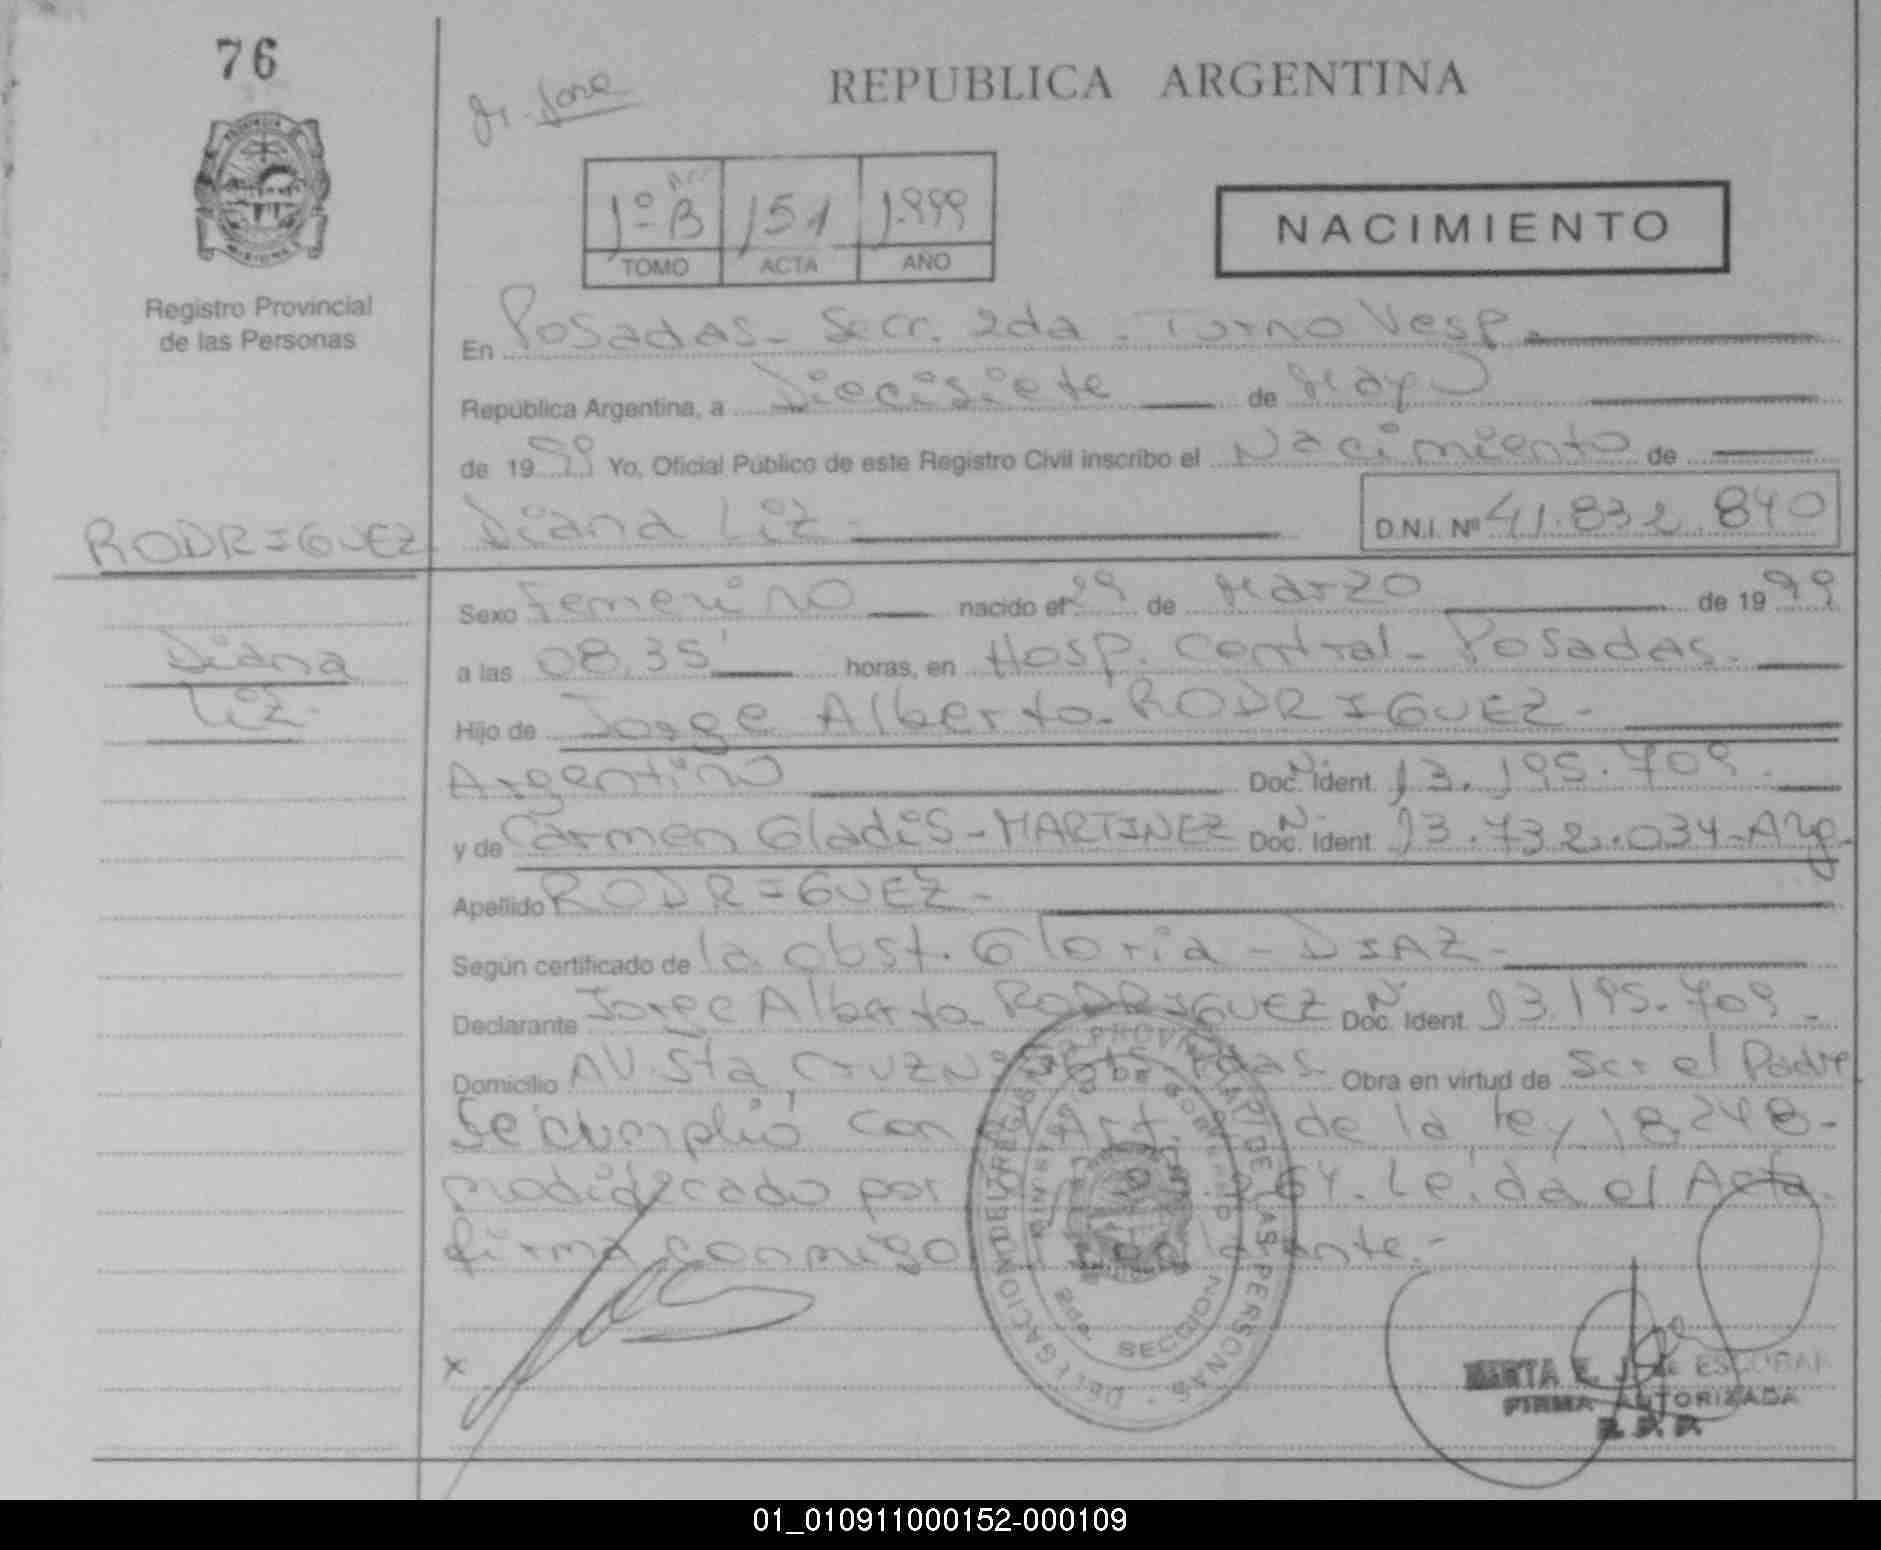 76
Jr. Jose
REPUBLICA ARGENTINA
1º B 151 1.999
TOMO ACTA AÑO
NACIMIENTO
Registro Provincial
de las Personas
En Posadas - Secr. 2da - Turno Vesp.
República Argentina, a Diecisiete de Mayo
de 19 99 Yo, Oficial Público de este Registro Civil inscribo el Nacimiento de
RODRIGUEZ Diana Liz - D.N.I. Nº 41.832.840
Sexo Femenino nacido el 29 de Marzo de 19 99
Diana
Liz.
a las 08,35' horas, en Hosp. Central - Posadas.
Hijo de Jorge Alberto - RODRIGUEZ -
Argentino Doc. Nº Ident. 13.195.709.
y de Carmen Gladis - MARTINEZ Doc. Nº Ident. 13.732.034 - Arg.
Apellido RODRIGUEZ -
Según certificado de la obst. Gloria - DIAZ -
Declarante Jorge Alberto - RODRIGUEZ Doc. Nº Ident. 13.195.709 -
Domicilio AV. Sta Cruz Nº Obra en virtud de Ser el Padre
Se cumplió con Art. de la ley 18248 -
modificado por Leída el Acta.
firma conmigo -
DELEGACION DEL REGISTRO PROVINCIAL DE LAS PERSONAS
MINISTERIO DE GOBIERNO
2da. SECCION
x
MIRTA E. J. de ESCOBAR
FIRMA AUTORIZADA
R. P. P.
01_010911000152-000109